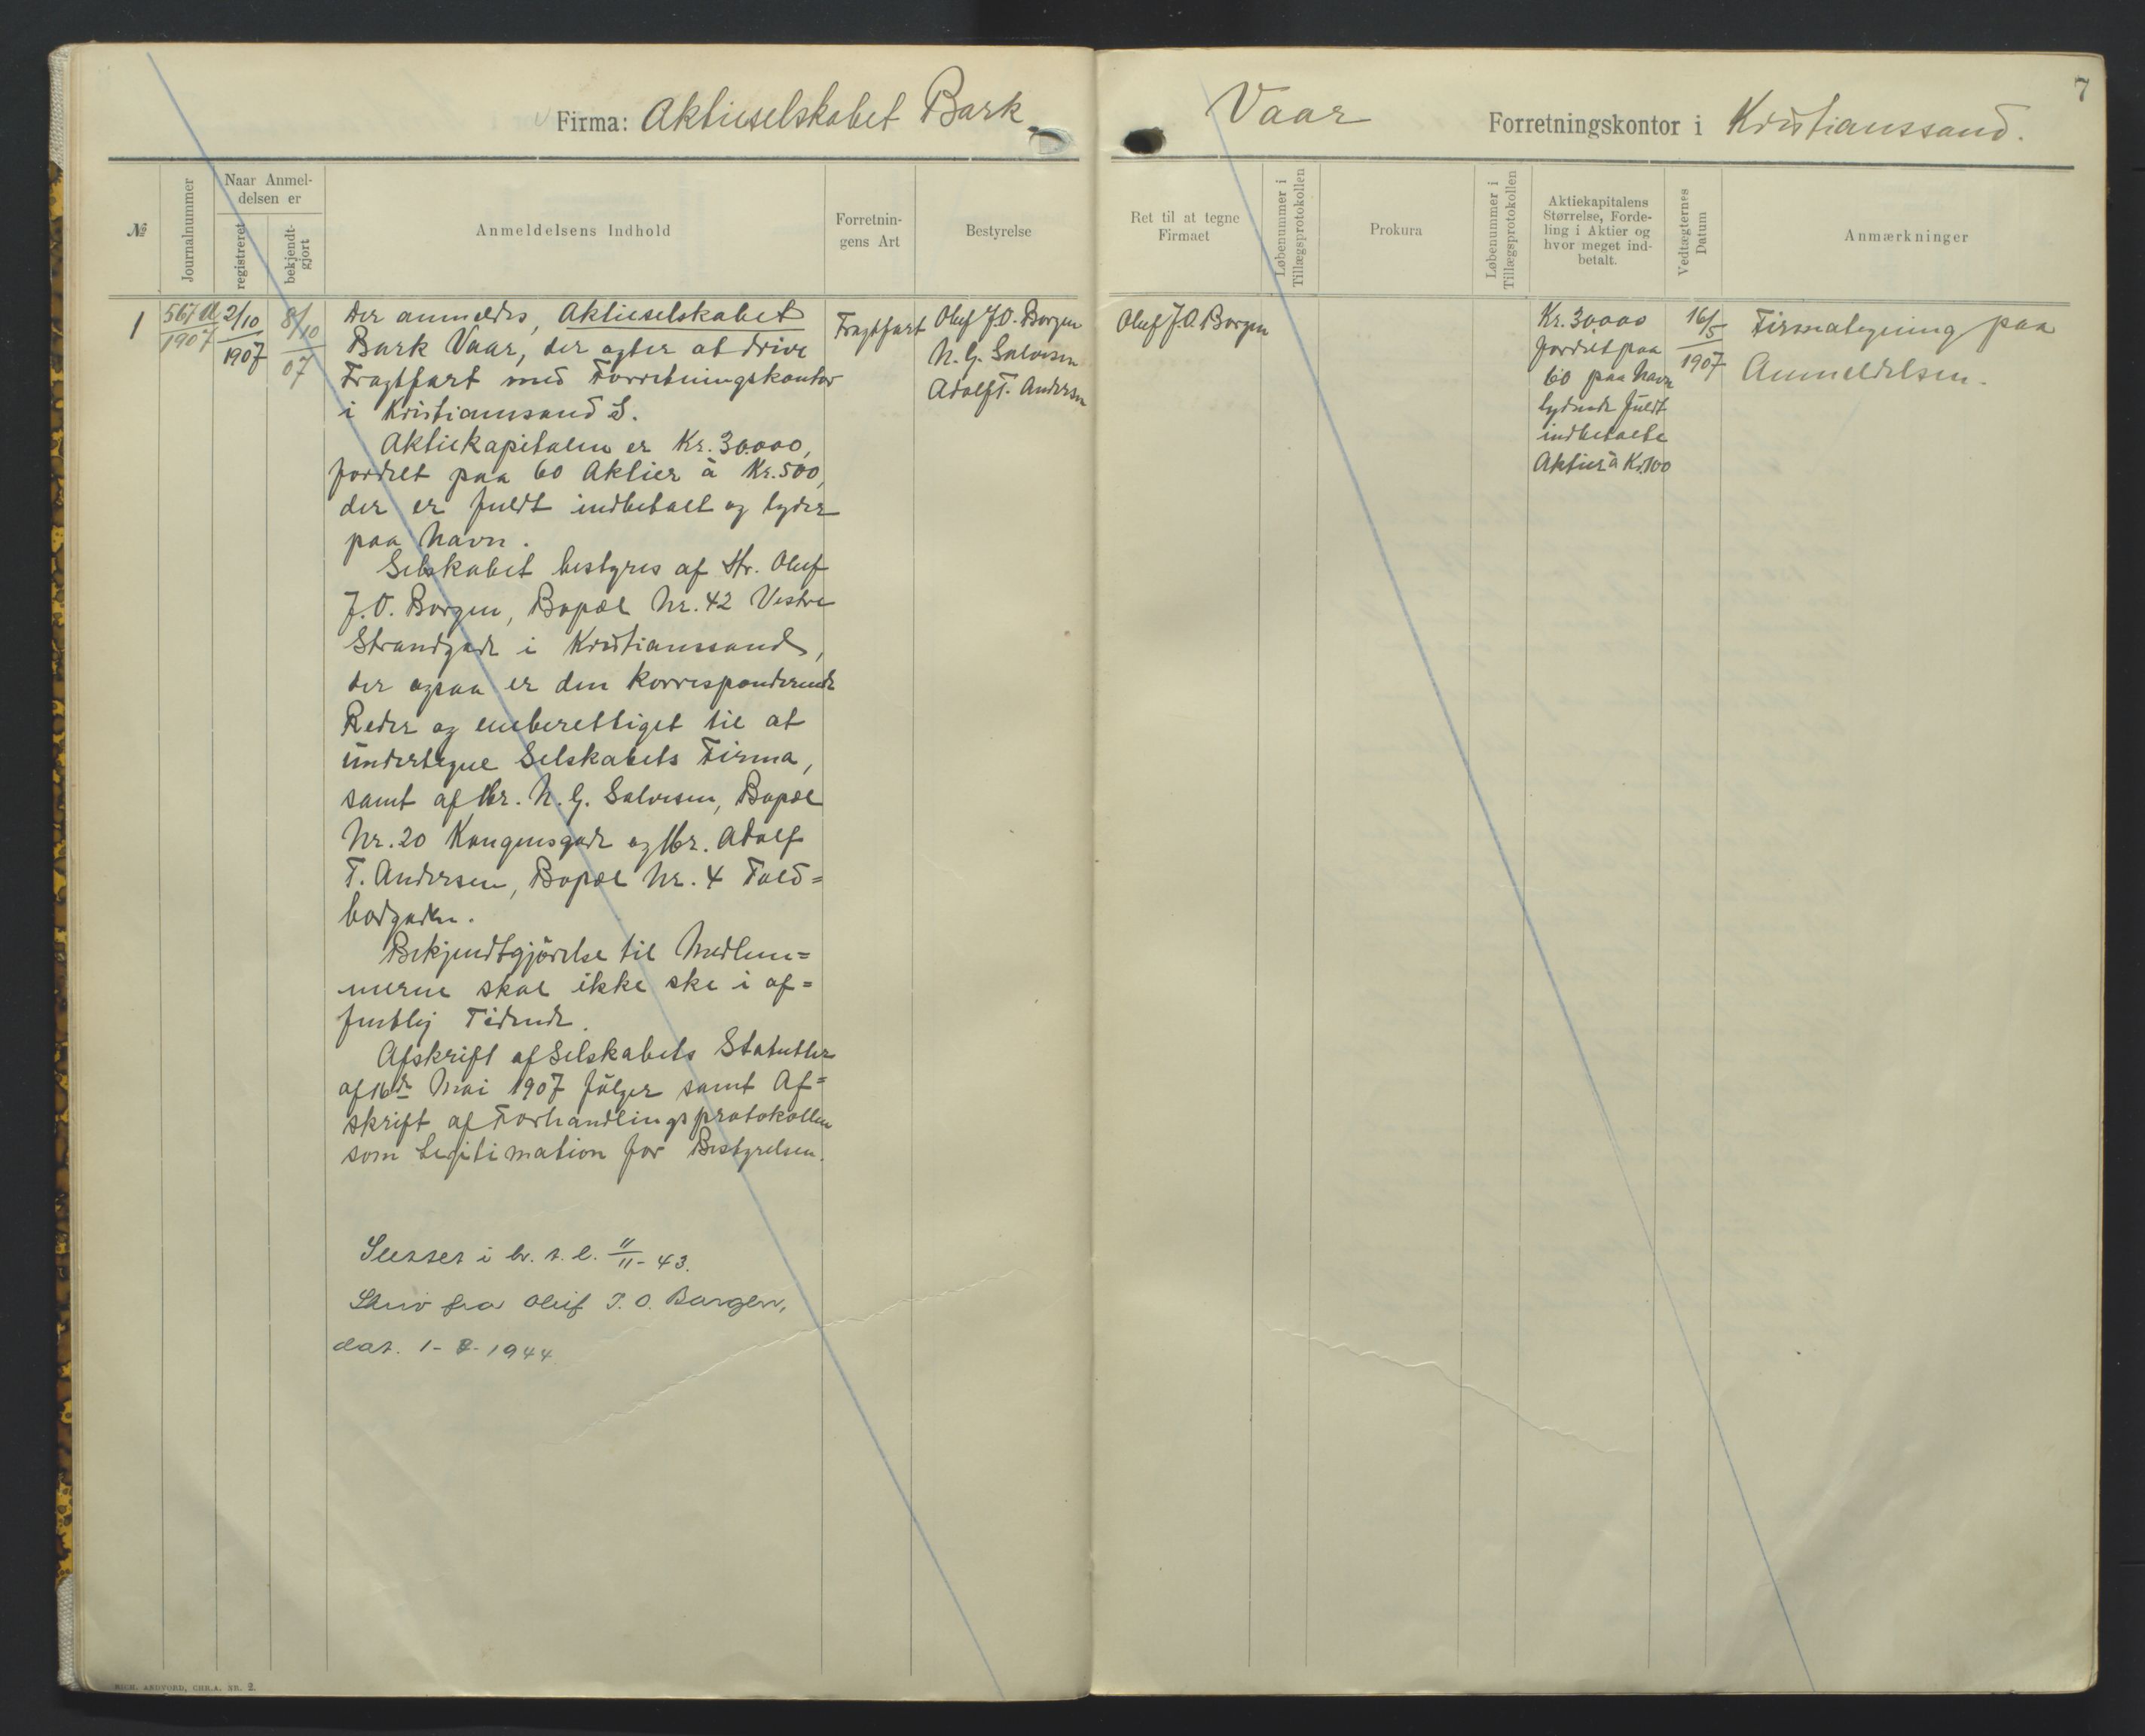 7
Firma: Aktieselskabet Bark Vaar Forretningskontor i Kristianssand.
№
Journalnummer
Naar Anmel-
delsen er
registreret
bekjendt-
gjort
Anmeldelsens Indhold
Forretnin-
gens Art
Bestyrelse
Ret til at tegne
Firmaet
Løbenummer i
Tillægsprotokollen
Prokura
Løbenummer i
Tillægsprotokollen
Aktiekapitalens
Størrelse, Forde-
ling i Aktier og
hvor meget ind-
betalt.
Vedtægternes
Datum
Anmærkninger
1
567 a
1907
2/10
1907
8/10
07
Der anmeldes, Aktieselskabet
Bark Vaar, der agter at drive
Fragtfart med Forretningskontor
i Kristianssand S.
Aktiekapitalen er Kr. 30.000,
fordelt paa 60 Aktier à Kr. 500,
der er fuldt indbetalt og lyder
paa Navn.
Selskabet bestyres af Hr. Oluf
J. O. Borgen, Bopæl Nr. 42 Vestre
Strandgade i Kristianssand,
der ogsaa er den korresponderende
Reder og eneberettiget til at
undertegne Selskabets Firma,
samt af Hr. N. G. Salvesen, Bopæl
Nr. 20 Kongensgade og Hr. Adolf
T. Andersen, Bopæl Nr. 4 Told=
bodgaden.
Bekjendtgjörelse til Medlem=
merne skal ikke ske i of=
fentlig Tidende.
Afskrift af Selskabets Statutter
af 16de Mai 1907 fölger samt Af=
skrift af Forhandlingsprotokollen
som Legitimation for Bestyrelsen.
Slettet i h. t. l. 11/11-43.
Skriv fra Oluf J. O. Borgen,
dat. 1-8-1944
Fragtfart
Oluf J. O. Borgen
N. G. Salvesen
Adolf T. Andersen
Oluf J. O. Borgen
Kr. 30.000
fordelt paa
60 paa Navn
lydende fuldt
indbetalte
Aktier à Kr. 100
16/5
1907
Firmategning paa
Anmeldelsen.
RICH. ANDVORD, CHR.A. NR. 2.